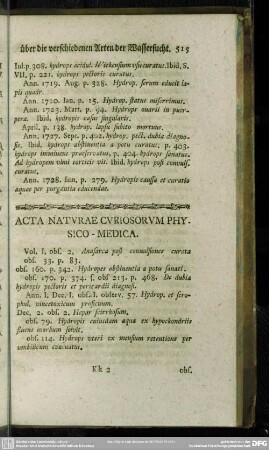 über die verschiedenen Arten der Wassersucht. 515
Iul. p. 308. hydrope acidul. Wickensium usu curatus. Ibid. S.
VII, p. 221. hydrops pectoris curatus.
Ann. 1719. Aug. p. 328. Hydrop. serum educit la-
pis quadr.
Ann. 1720. Ian. p. 15. Hydrop. status miserrimus.
Ann. 1723. Mart. p. 94. Hydrope mortui in puer-
pera. Ibid. hydropis casus singularis.
April. p. 138. hydrop. lapsu subito mortuus.
Ann. 1727. Sept. p. 402. hydrop. poss. dubia diagno-
se. Ibid. hydrops abstinentia a potu curatus; p. 403.
hydrops imminens praeservatus, p. 404. hydrops sanatus.
Ad hydropem vini corticis vis. Ibid. hydrops post commess.
curatus.
Ann. 1728. Ian. p. 279. Hydropis caussa et curatio
aquae per purgantia educendae.
ACTA NATVRAE CVRIOSORVM PHY-
SICO - MEDICA.
Vol. I. obs. 2. Anasarca post convulsiones curata
obs. 33. p. 83.
obs. 160. p. 342. Hydropes abstinentia a potu sanati.
obs. 170. p. 374. s. obs 213. p. 468. De dubia
hydropis pectoris et pericardii diagnosi.
Ann. I. Dec. I. obs. I. observ. 57. Hydrop. et scro-
phul. vincetoxicum proficuum.
Dec. 2. obs. 2. Hepar scirrhosum.
obs. 79. Hydropis cuiusdam aqua ex hypochondriis
fluens morbum solvit.
obs. 114. Hydrops uteri ex mensium retentione per
umbilicum evacuatus.
Kk 2 obs.